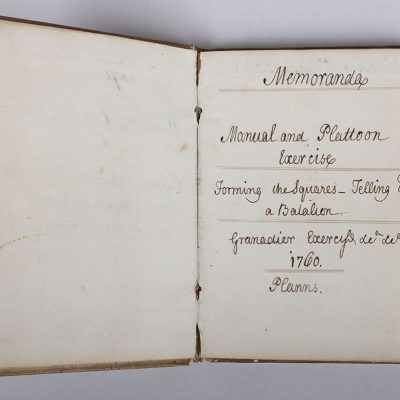 Memoranda
Manual and Plattoon
Exercise
Forming the Squares - Telling
a Batalion
Granadier Exercise &c &c
1760.
Planns.